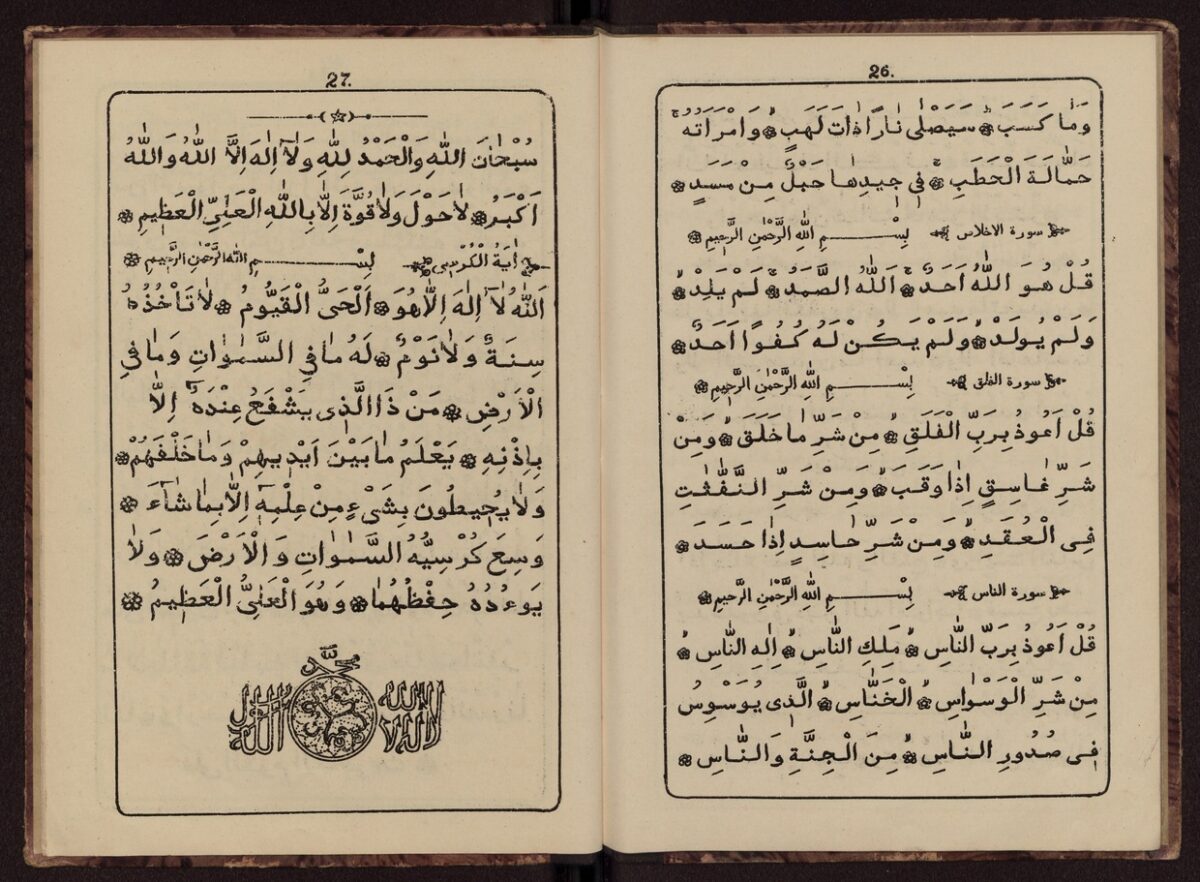 26.
وَمَا كَسَبَ سَيَصْلٰى نَارًا ذَاتَ لَهَبٍ وَامْرَاَتُهُ
حَمَّالَةَ الْحَطَبِ فِي جِيدِهَا حَبْلٌ مِنْ مَسَدٍ
سورة الاخلاس بِسْمِ اللهِ الرَّحْمٰنِ الرَّحِيمِ
قُلْ هُوَ اللهُ اَحَدٌ اَللهُ الصَّمَدُ لَمْ يَلِدْ
وَلَمْ يُولَدْ وَلَمْ يَكُنْ لَهُ كُفُوًا اَحَدٌ
سورة الفلق بِسْمِ اللهِ الرَّحْمٰنِ الرَّحِيمِ
قُلْ اَعُوذُ بِرَبِّ الْفَلَقِ مِنْ شَرِّ مَا خَلَقَ وَمِنْ
شَرِّ غَاسِقٍ اِذَا وَقَبَ وَمِنْ شَرِّ النَّفّٰثٰتِ
فِى الْعُقَدِ وَمِنْ شَرِّ حَاسِدٍ اِذَا حَسَدَ
سورة الناس بِسْمِ اللهِ الرَّحْمٰنِ الرَّحِيمِ
قُلْ اَعُوذُ بِرَبِّ النَّاسِ مَلِكِ النَّاسِ اِلٰهِ النَّاسِ
مِنْ شَرِّ الْوَسْوَاسِ الْخَنَّاسِ الَّذِى يُوَسْوِسُ
فِى صُدُورِ النَّاسِ مِنَ الْجِنَّةِ وَالنَّاسِ
27.
سُبْحَانَ اللهِ وَالْحَمْدُ لِلّٰهِ وَلَا اِلٰهَ اِلَّا اللهُ وَاللهُ
اَكْبَرُ لَاحَوْلَ وَلَاقُوَّةَ اِلَّا بِاللهِ الْعَلِىِّ الْعَظِيمِ
اٰيَةُ الْكُرْسِى بِسْمِ اللهِ الرَّحْمٰنِ الرَّحِيمِ
اَللهُ لَا اِلٰهَ اِلَّا هُوَ اَلْحَىُّ الْقَيُّومُ لَا تَاْخُذُهُ
سِنَةٌ وَلَا نَوْمٌ لَهُ مَا فِي السَّمٰوَاتِ وَمَا فِي
الْاَرْضِ مَنْ ذَا الَّذِى يَشْفَعُ عِنْدَهُ اِلَّا
بِاِذْنِهِ يَعْلَمُ مَا بَيْنَ اَيْدِيهِمْ وَمَا خَلْفَهُمْ
وَلَا يُحِيطُونَ بِشَىْءٍ مِنْ عِلْمِهِ اِلَّا بِمَا شَاءَ
وَسِعَ كُرْسِيُّهُ السَّمٰوَاتِ وَالْاَرْضَ وَلَا
يَوءُدُهُ حِفْظُهُمَا وَهُوَ الْعَلِىُّ الْعَظِيمُ
لااله الاالله محمد رسول الله